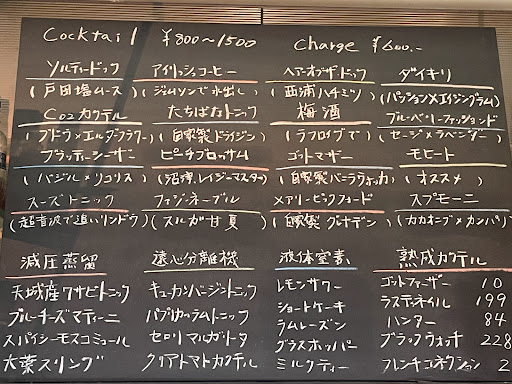 Cocktail ¥800〜1500 Charge ¥600.-
ソルティードッグ アイリッシュコーヒー ヘアーオブザドッグ ダイキリ
(戸田塩ムース) (ジムソンで水出し) (西浦ハチミツ) (パッション×エイジングラム)
CO2カクテル たちばなトニック 梅酒 ブルーベリーファッションド
(ブドウ×エルダーフラワー) (自家製ドライジン) (ラフロイグで) (セージ×ラベンダー)
ブラッディーシーザー ピーチブロッサム ゴットマザー モヒート
(バジル×リコリス) (沼津レイジーマスター) (自家製バニラウォッカ) (オススメ)
スーズトニック ファジーネーブル メアリーピックフォード スプモーニ
(超音波で追いリンドウ) (スルガ甘夏) (自家製グレナデン) (カカオニブ×カンパリ)
減圧蒸留 遠心分離機 液体窒素 熟成カクテル
天城産ワサビトニック キューカンバージントニック レモンサワー ゴットファーザー 10
ブルーチーズマティーニ パプリカラムトニック ショートケーキ ラスティネイル 199
スパイシーモスコミュール セロリマルガリータ ラムレーズン ハンター 84
大葉スリング クリアトマトカクテル グラスホッパー ブラックウォッチ 228
ミルクティー フレンチコネクション 2